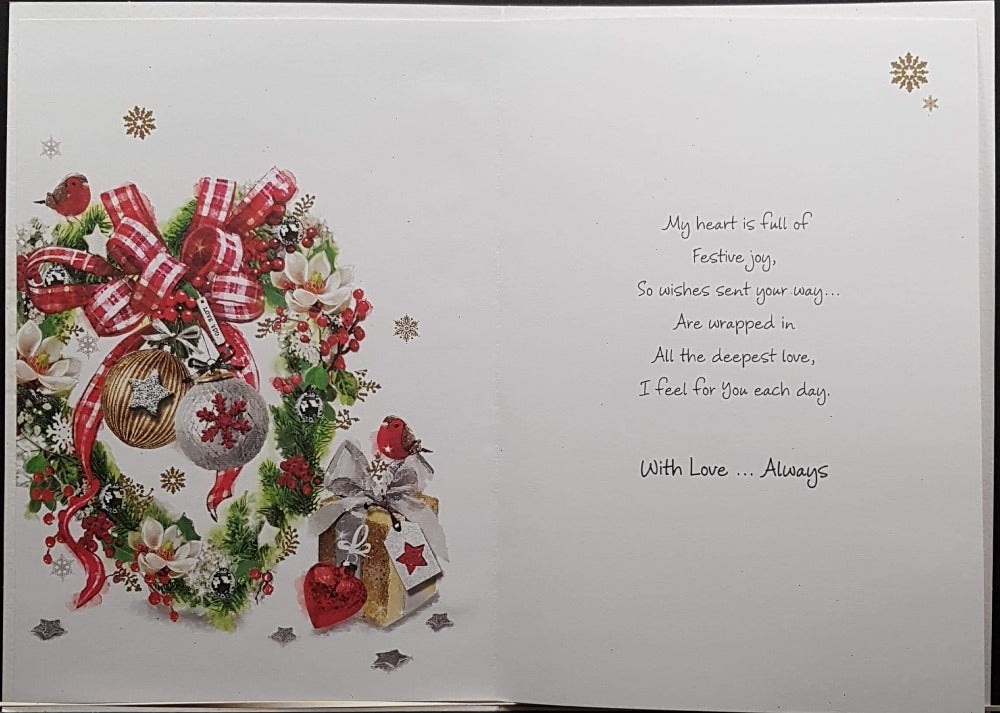 My heart is full of
Festive joy,
So wishes sent your way...
Are wrapped in
All the deepest love,
I feel for You each day.
With Love ... Always